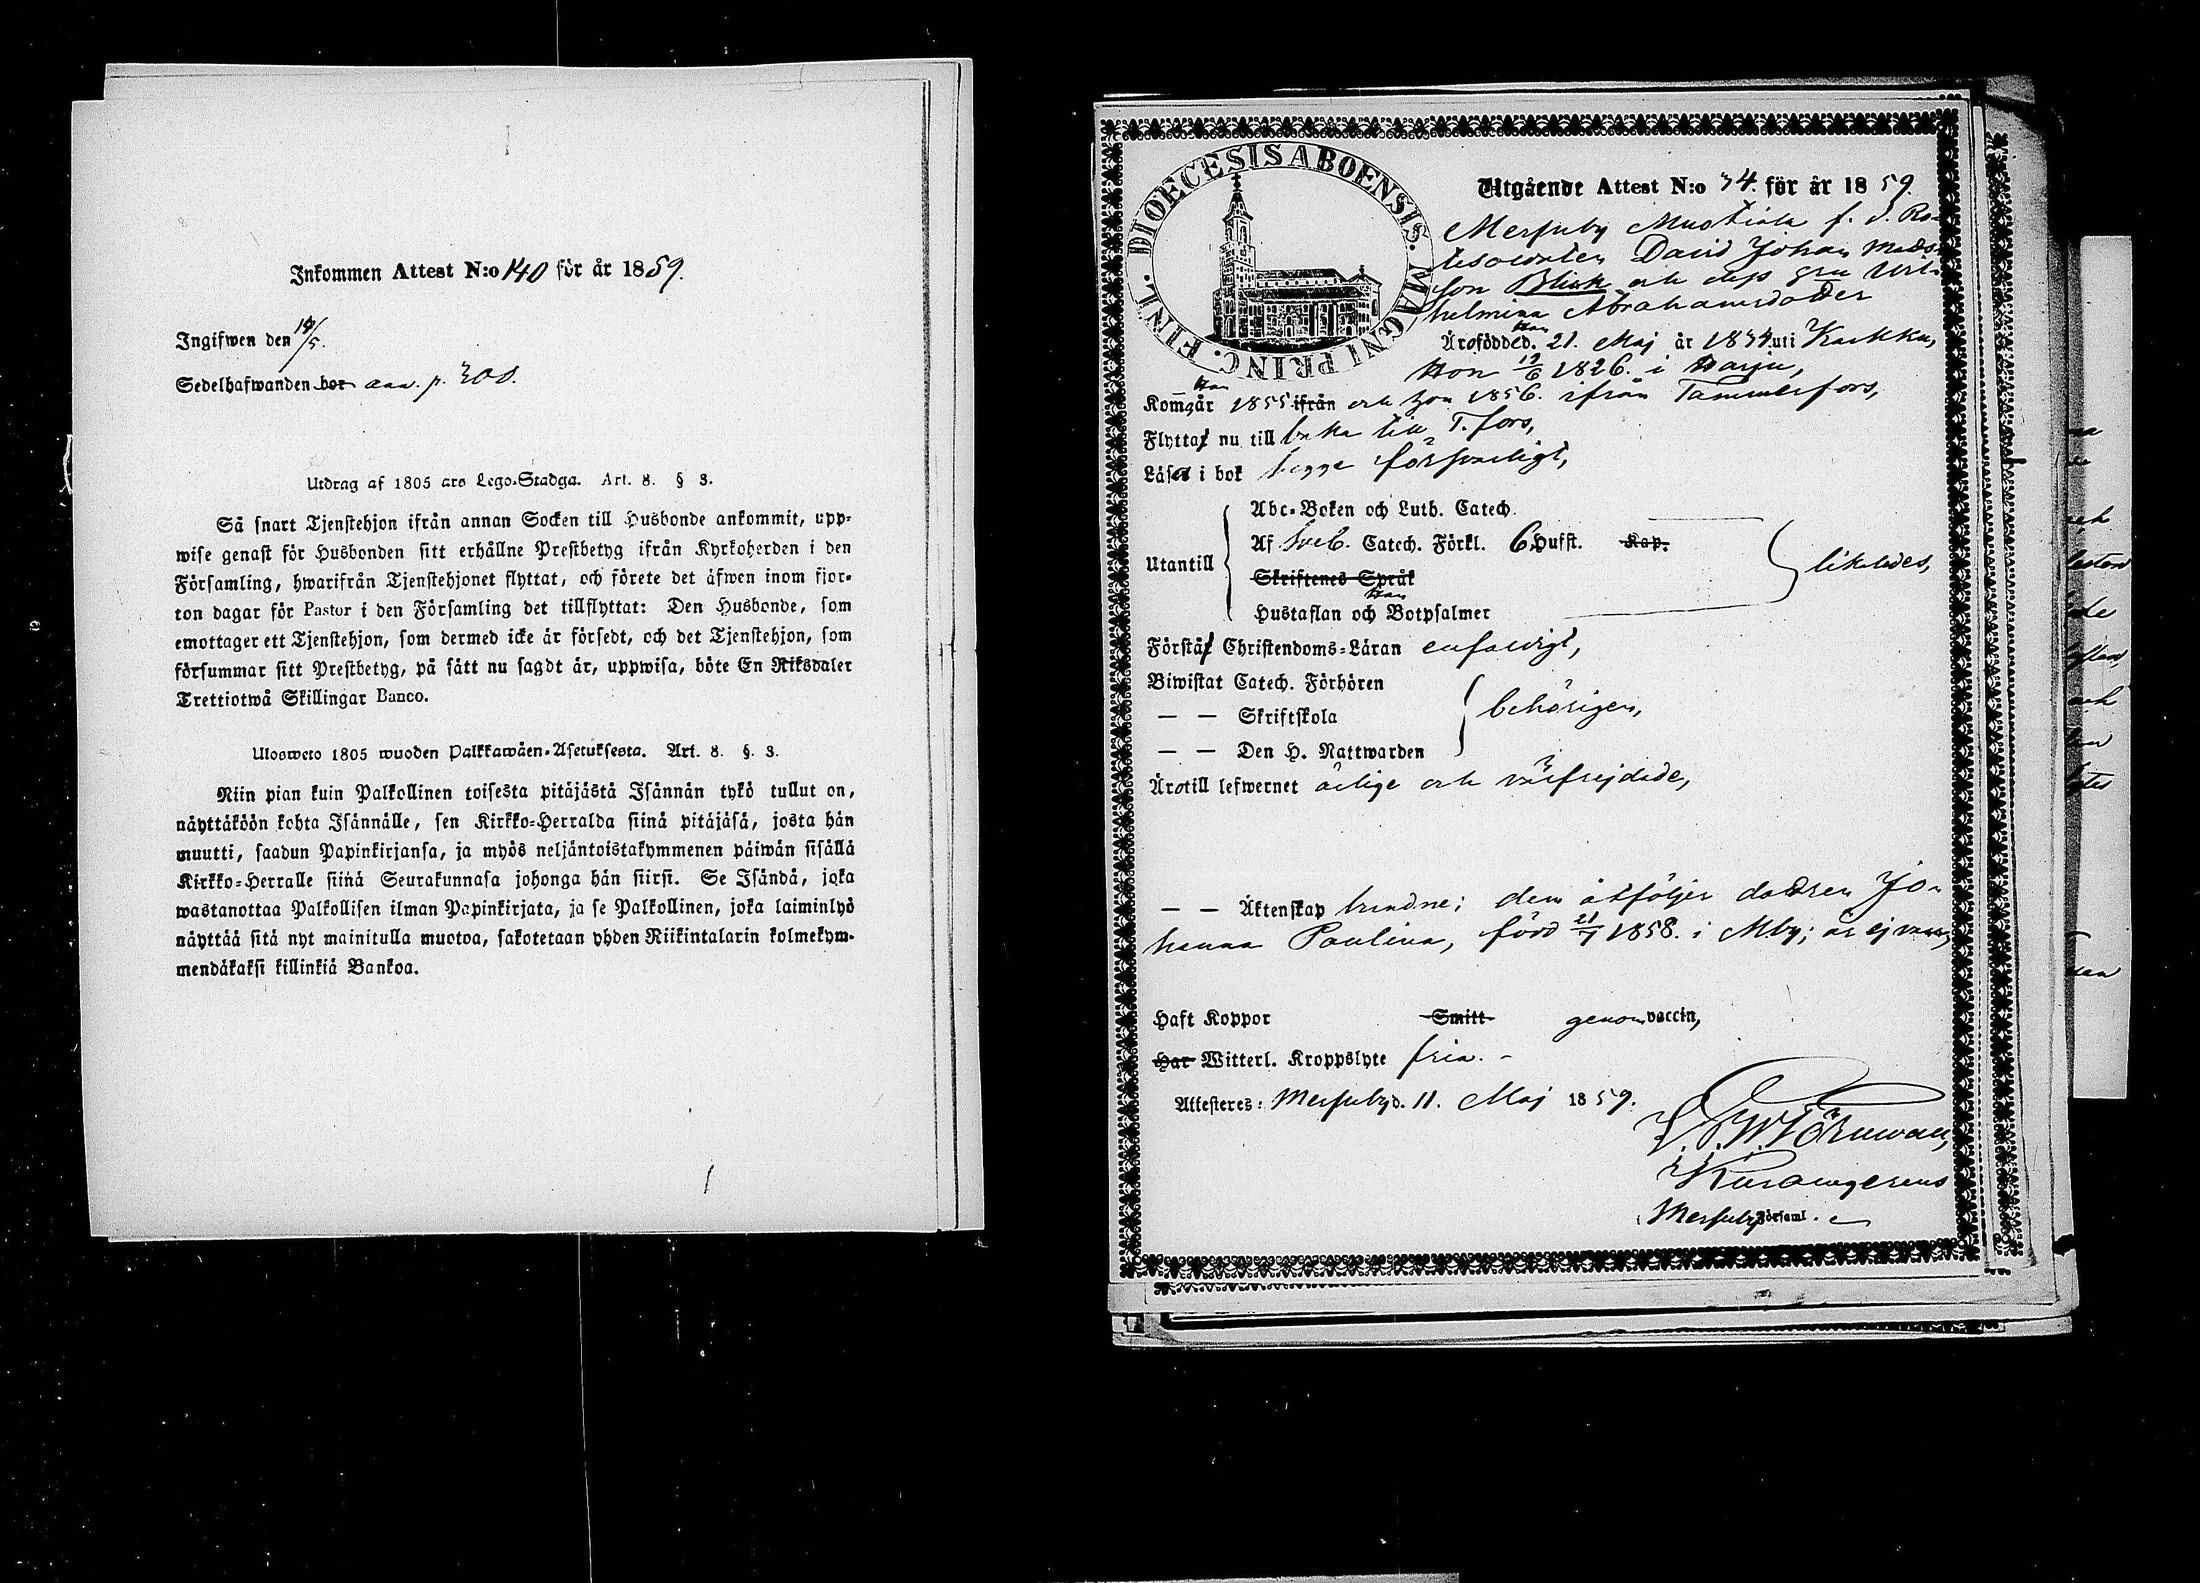 Inkommen Attest N:o 140 för år 1859.
Ingifwen den 19/5.
Sedelhafwanden bor ann. p. 308.
Utdrag af 1805 års Lego-Stadga. Art. 8. § 3.
Så snart Tjenstehjon ifrån annan Socken till Husbonde ankommit, upp-
wise genast för Husbonden sitt erhållne Prestbetyg ifrån Kyrkoherden i den
Församling, hwarifrån Tjenstehjonet flyttat, och förete det äfwen inom fjor-
ton dagar för Pastor i den Församling det tillflyttat: Den Husbonde, som
emottager ett Tjenstehjon, som dermed icke är försedt, och det Tjenstehjon, som
försummar sitt Prestbetyg, på sätt nu sagdt är, uppwisa, böte En Riksdaler
Trettiotwå Skillingar Banco.
Ulosweto 1805 wuoden Palkkawäen-Asetuksesta. Art. 8. §. 3.
Niin pian kuin Palkollinen toisesta pitäjästä Isännän tykö tullut on,
näyttäköön kohta Isännälle, sen Kirkko-Herralda siinä pitäjäsä, josta hän
muutti, saadun Papinkirjansa, ja myös neljäntoistakymmenen päiwän sisällä
Kirkko-Herralle siinä Seurakunnasa johonga hän siirsi. Se Isändä, joka
wastanottaa Palkollisen ilman Papinkirjata, ja se Palkollinen, joka laiminlyö
näyttää sitä nyt mainitulla muotoa, sakotetaan yhden Riikintalarin kolmekym-
mendäkaksi killinkiä Bankoa.
DIOECESIS ABOENSIS. MAGNI PRINC. FINL.
Utgående Attest N:o 34. för år 1859.
Mersuby Mustiala f. d. Ro-
tesoldaten David Johan Mads-
son Blick och dess hu Wil-
helmina Abrahamsdotter
Äro född han d. 21. Maj år 1834 uti Karkku,
Hon 12/6 1826. i Harju,
Kom han år 1855 ifrån och hon 1856. ifrån Tammerfors,
Flytta nu till baka till T.fors,
Läsa i bok begge försvarligt,
Utantill
Abc-Boken och Luth. Catech.
Af Sveb. Catech. Förkl. 6 Hufst. Kap.
Skriftenes Språk
Hustaflan och Botpsalmer han
likaledes,
Förstå Christendoms-Läran enfaldigt,
Biwistat Catech. Förhören
— — Skriftskola
— — Den H. Nattwarden
behörigen,
Äro till lefwernet ärlige och välfrejdade,
— — Äktenskap bundne; dem åtföljer dottren Jo-
hanna Paulina, född 21/7 1858. i Mby; är ej vacc,
Haft Koppor Smitt genom vaccin,
Har Witterl. Kroppslyte fria. -
Attesteres: Mersuby d. 11. Maj 1859.
Törnwall,
Mersuby Församl.